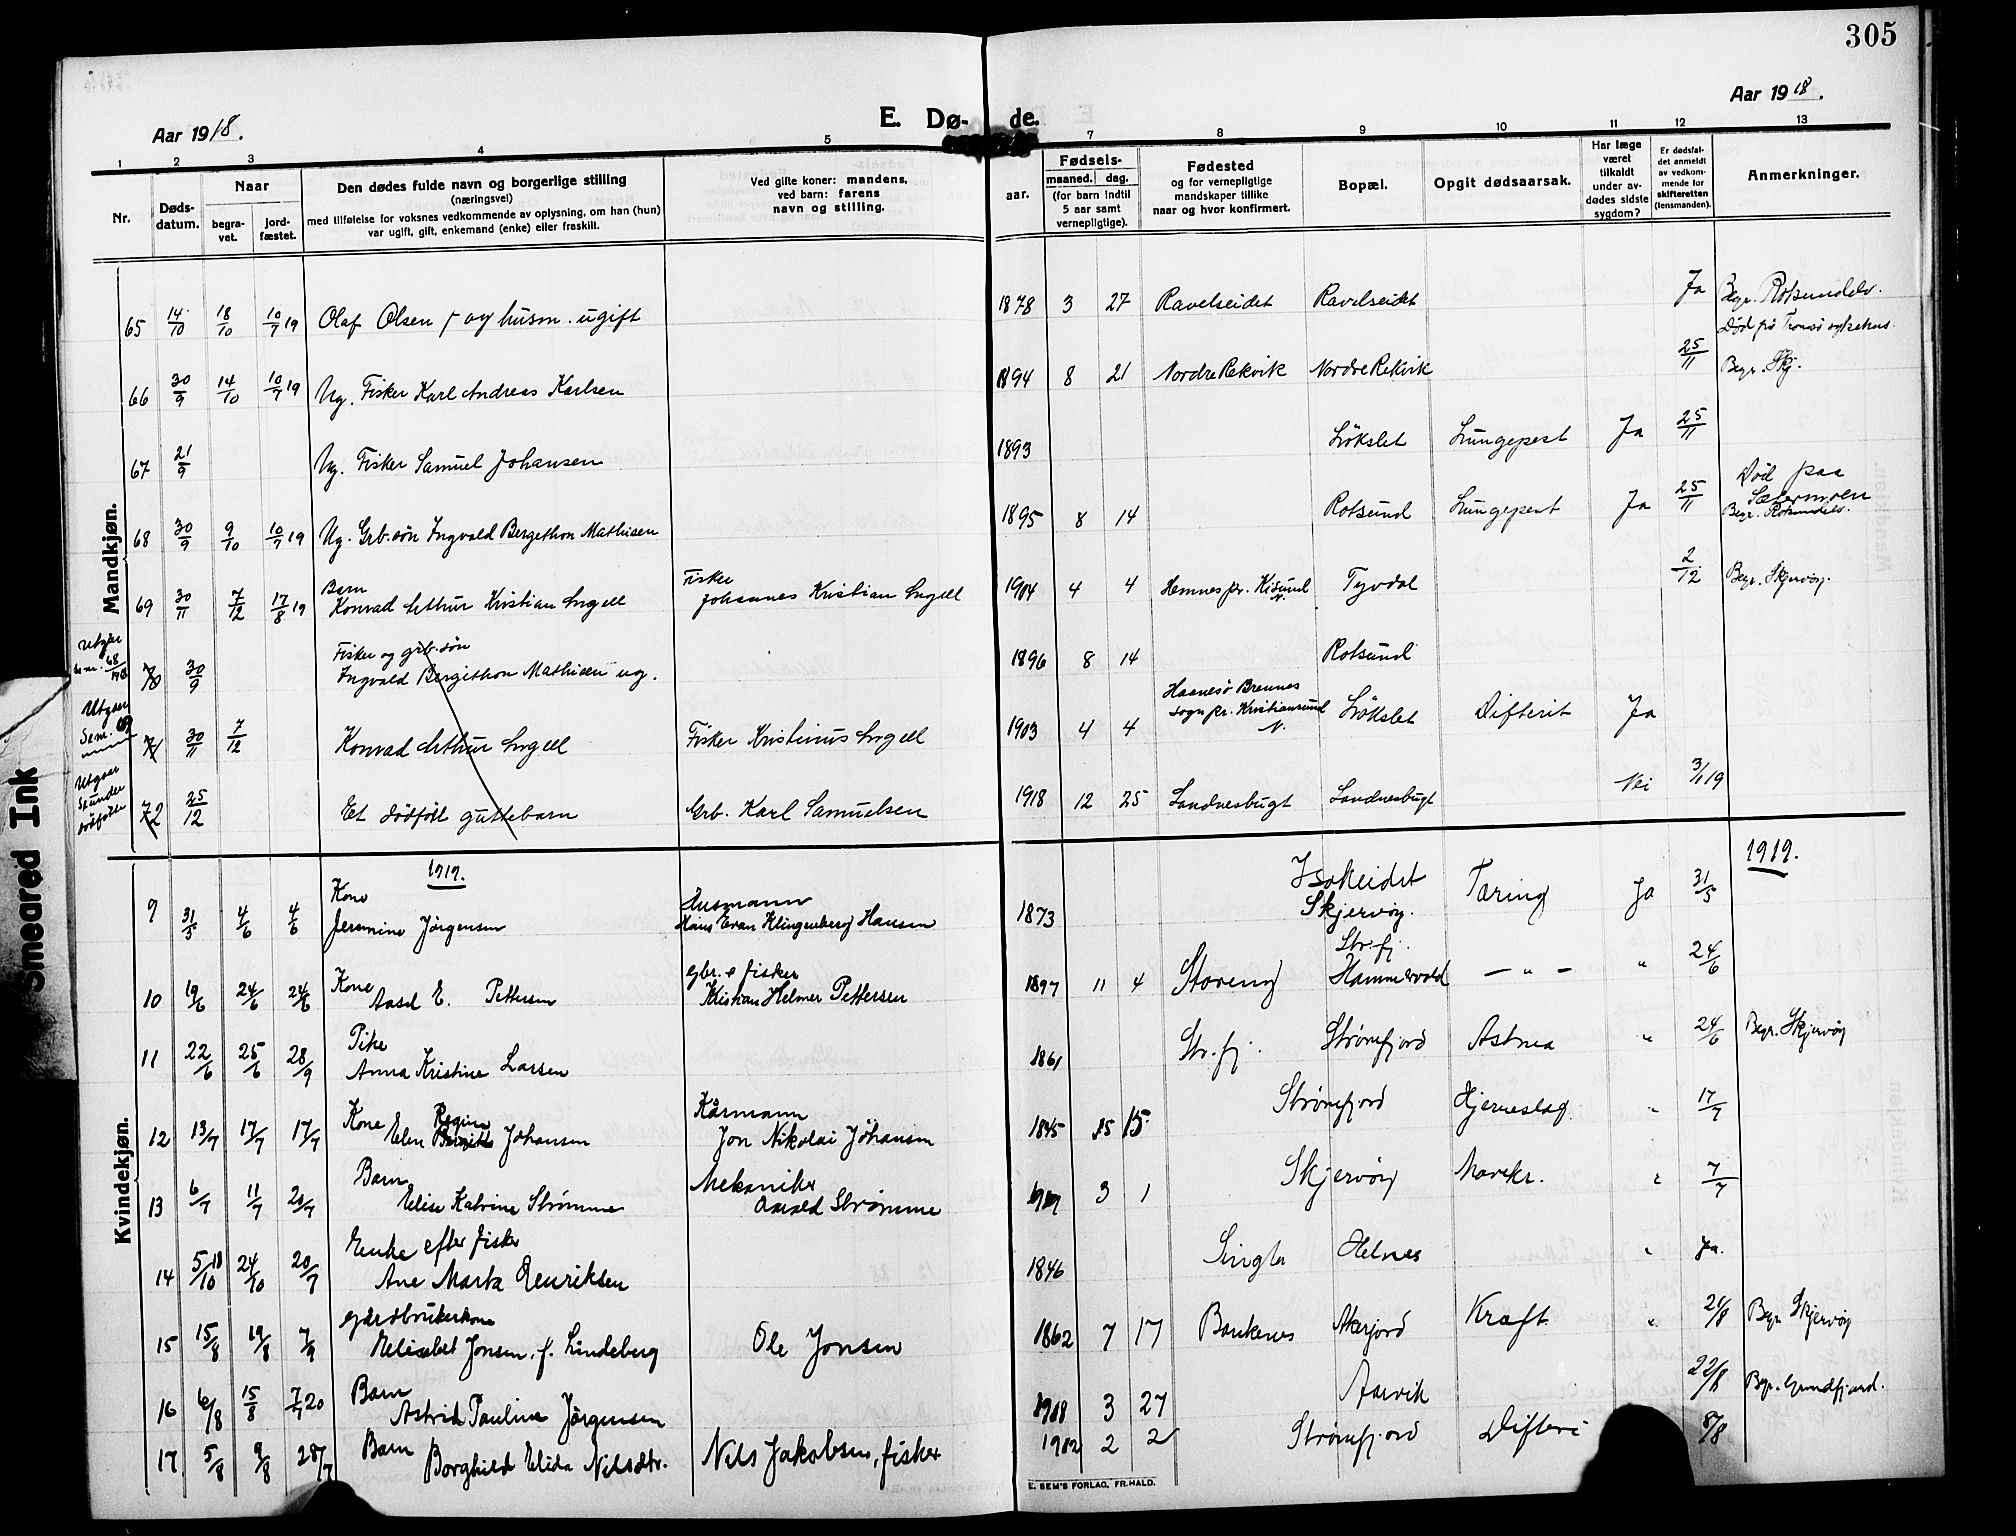 305
Aar 1918.
E. Dø-
de.
Aar 1918.
1 2 3 4 5 7 8 9 10 11 12 13
Nr.
Døds-
datum.
Naar
begra-
vet.
jord-
fæstet.
Den dødes fulde navn og borgerlige stilling
(næringsvei)
med tilføielse for voksnes vedkommende av oplysning, om han (hun)
var ugift, gift, enkemand (enke) eller fraskilt.
Ved gifte koner: mandens,
ved barn: farens
navn og stilling.
aar.
Fødsels-
maaned. dag.
(for barn indtil
5 aar samt
vernepligtige).
Fødested
og for vernepligtige
mandskaper tillike
naar og hvor konfirmert.
Bopæl.
Opgit dødsaarsak.
Har læge
været
tilkaldt
under av-
dødes sidste
sygdom?
Er dødsfal-
det anmeldt
av vedkom-
mende for
skifteretten
(lensmanden).
Anmerkninger.
Mandkjøn.
65 14/10 18/10 10/7 19 Olaf Olsen f og husm. ugift 1878 3 27 Ravelseidet Ravelseidet Ja Begr. Rotsundelv.
Død på Tromsö sykehus.
66 30/9 14/10 10/7 19 Ug. Fisker Karl Andreas Karlsen 1894 8 21 Nordre Rekvik Nordre Rekvik 25/11 Begr. Skj.
67 21/9 Ug. Fisker Samuel Johansen 1893 Lökslet Lungepest Ja 25/11
Død paa
Sætermoen
68 30/9 9/10 10/7 19 Ug. Grb. sön Ingvald Bergethon Mathisen 1895 8 14 Rotsund Lungepest Ja 25/11 Begr. Rotsundelv.
Barn
Fisker
69 30/11 7/12 17/8 19 Konrad Arthur Kristian Angell Johannes Kristian Angell 1904 4 4 Hemnes pr. Kr.sund N. Tyvdal 2/12 Begr. Skjervöy.
Utgaar
se nr. 68/1918
Fisker og grb. sön
70 30/9 Ingvald Bergithon Mathisen ug. 1896 8 14 Rotsund
Utgaar
Se nr. 69
71 30/11 7/12 Konrad Arthur Angell Fisker Kristinus Angell 1903 4 4 Lökslet Difterit Ja
sogn pr. Kristiansund
N.
Utgaar
Se under
dödfödte
72 25/12 Et dödfött guttebarn Grb. Karl Samuelsen 1918 12 25 Sandnesbugt Sandnesbugt Nei 3/1 19
Kvindekjøn.
1919.
1919.
Kone
Husmann
9 31/5 4/6 4/6 Jensmine Jørgensen Hans Evan Klingenberg Hansen 1873 Isakeidet
Skjervöy. Tæring Ja 31/5
Kone
gbr. e fisker
Str.fj.
10 19/6 24/6 24/6 Aasel E. Pettersen Kristian Helmer Pettersen 1897 11 4 Storeng Hammervold — " — " 24/6
Pike
11 22/6 25/6 28/9 Anna Kristine Larsen 1861 Str.fj. Strømfjord Astma " 24/6 Begr. Skjervöy
Kone
Regine
Kårmann
12 13/7 17/7 17/7 Elen Johansen Jon Nikolai Johansen 1845 15 Strømfjord Hjerneslag " 17/7
Barn
Mekaniker
13 6/7 11/7 20/7 Elise Katrine Strømme Strømme 1919 3 1 Skjervöy " 7/7
Enke efter fisker
14 5/10 18 24/10 20/7 Ane Marta Henriksen 1846 Singla Helnes " Ja.
gårdbrukerkone
15 15/8 19/8 7/9 Elisabet Jonsen, f. Lindeberg Ole Jonsen 1862 7 17 Bankenes Akerjord Kræft " 21/8 Begr. Skjervöy
Barn
16 6/8 15/8 7/7 20 Astrid Pauline Jørgensen 1918 3 27 Aarvik 22/8 Begr. Grundfjord.
17 5/8 9/8 28/7 Barn Borghild Elida Nilsdtr. Nils Jakobsen, fisker 1912 2 2 Strømfjord Difteri 8/8
E. SEM'S FORLAG, FR.HALD.
Smeared Ink